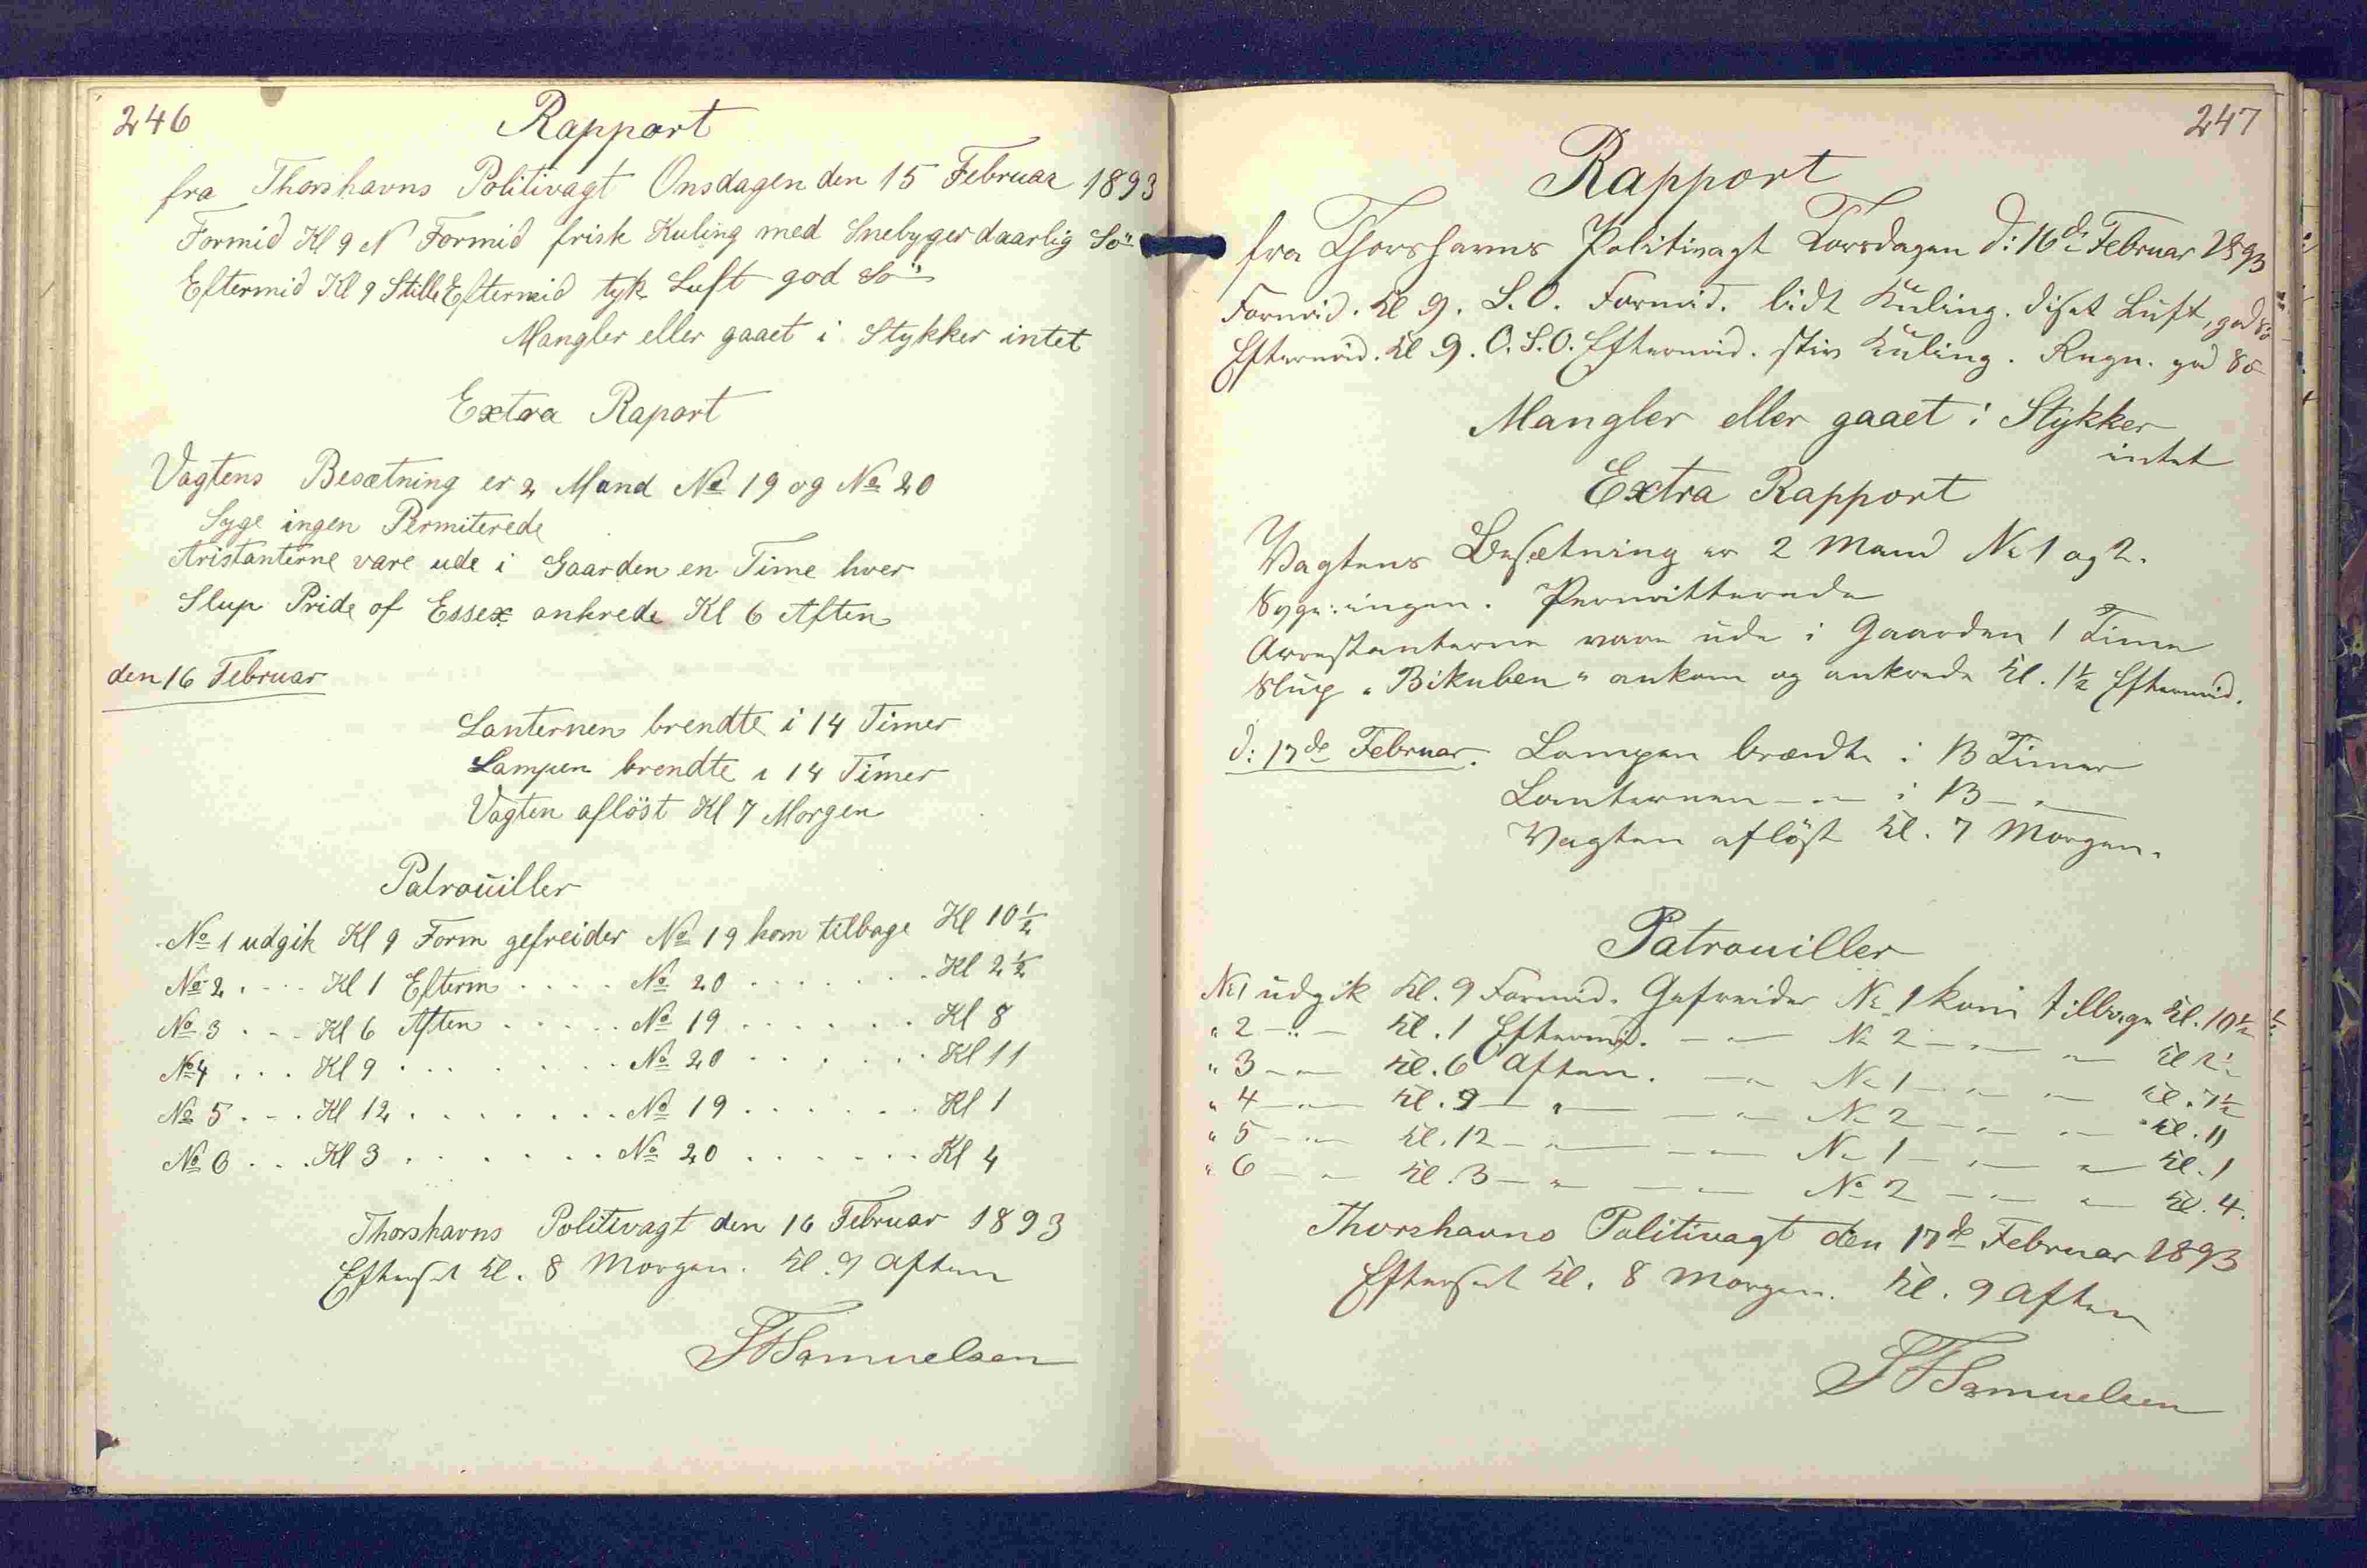 246
Rapport
fra Thorshavns Politivagt Onsdagen den 15 Februar 1893
Formid Kl 9 N Formid frisk Kuling med Snebyger daarlig Sö
Eftermid Kl 9 Stille Eftermid tyk Luft god Sö
Mangler eller gaaet i Stykker intet
Extra Raport
Vagtens Besætning er 2 Mand No 19 og No 20
Syge ingen Permiterede
Aristanterne vare ude i Gaarden en Time hver
Slup Pride of Essex ankrede Kl 6 Aften
den 16 Februar
Lanternen brendte i 14 Timer
Lampen brendte i 14 Timer
Vagten aflöst Kl 7 Morgen
Patrouiller
No 1 udgik Kl 9 Form gefreider No 19 kom tilbage Kl 10½
No 2 . . . . Kl 1 Efterm . . . . No 20 . . . . . . Kl 2½
No 3 . . . Kl 6 Aften . . . . . No 19 . . . . . . Kl 8
No 4 . . . Kl 9 . . . . . . . . No 20 . . . . . . Kl 11
No 5 . . . Kl 12 . . . . . . . No 19 . . . . . . Kl 1
No 6 . . . Kl 3 . . . . . . . No 20 . . . . . . Kl 4
Thorshavns Politivagt den 16 Februar 1893
Efterset Kl. 8 Morgen. Kl. 9 Aften
SFSamuelsen
247
Rapport
fra Thorshavns Politivagt Torsdagen d: 16de Februar 1893
Formid. Kl 9. S.O. Formid. lidt Kuling. diset Luft, god Sö
Eftermid. Kl 9. O.S.O. Eftermid. stiv Kuling. Regn. god Sö
Mangler eller gaaet i Stykker
intet
Extra Rapport
Vagtens Besætning er 2 Mand No 1 og 2.
Syge: ingen. Permitterede
Arrestanterne vare ude i Gaarden 1 Time
Slup "Bikuben" ankom og ankrede Kl. 1½ Eftermid.
d: 17de Februar. Lampen brændte i 13 Timer
Lanternen - " - i 13 - " -
Vagten aflöst Kl. 7 Morgen.
Patrouiller
No 1 udgik Kl. 9 Formid. Gefreider No 1 kom tilbage Kl. 10½
" 2 - " - Kl. 1 Eftermid. - " - No 2 - " - " - Kl 2½
" 3 - " - Kl. 6 Aften. - " - No 1 - " - " - Kl. 7½
" 4 - " - Kl. 9 - " - - " - No 2 - " - " - Kl. 11
" 5 - " - Kl. 12 - " - - " - No 1 - " - " - Kl. 1
" 6 - " - Kl. 3 - " - - " - No 2 - " - " - Kl. 4.
Thorshavns Politivagt den 17de Februar 1893
Efterset Kl. 8 Morgen. Kl. 9 Aften
SFSamuelsen